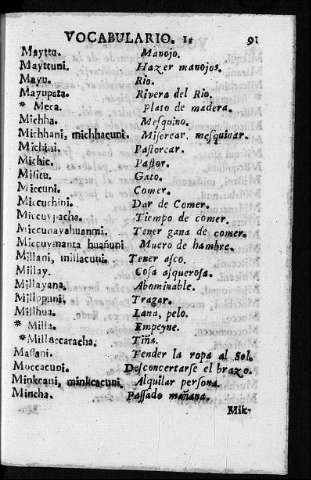 VOCABULARIO. I. 91
Mayttu. Manojo.
Mayttuni. Hazer manojos.
Mayu. Rio.
Mayupata. Rivera del Rio.
* Meca. Plato de madera.
Michha. Mesquino.
Michhani, michhacuni. Misercar, mesquinar.
Michini. Pastorear.
Michic. Pastor.
Misitu. Gato.
Miccuni. Comer.
Miccuchini. Dar de Comer.
Miccuypacha. Tiempo de comer.
Miccunayahuanmi. Tener gana de comer.
Miccuymanta huañuni Muero de hambre.
Millani, millacuni. Tener asco.
Millay. Cosa asquerosa.
Millayana. Abominable.
Millppuni. Tragar.
Millhua. Lana, pelo.
* Milla. Empeyne.
* Millaccaracha. Tiña.
Masani. Tender la ropa al Sol.
Moccacuni. Desconcertarse el brazo.
Minkcani, minkcacuni. Alquilar persona.
Mincha. Passado mañana.
Mik-